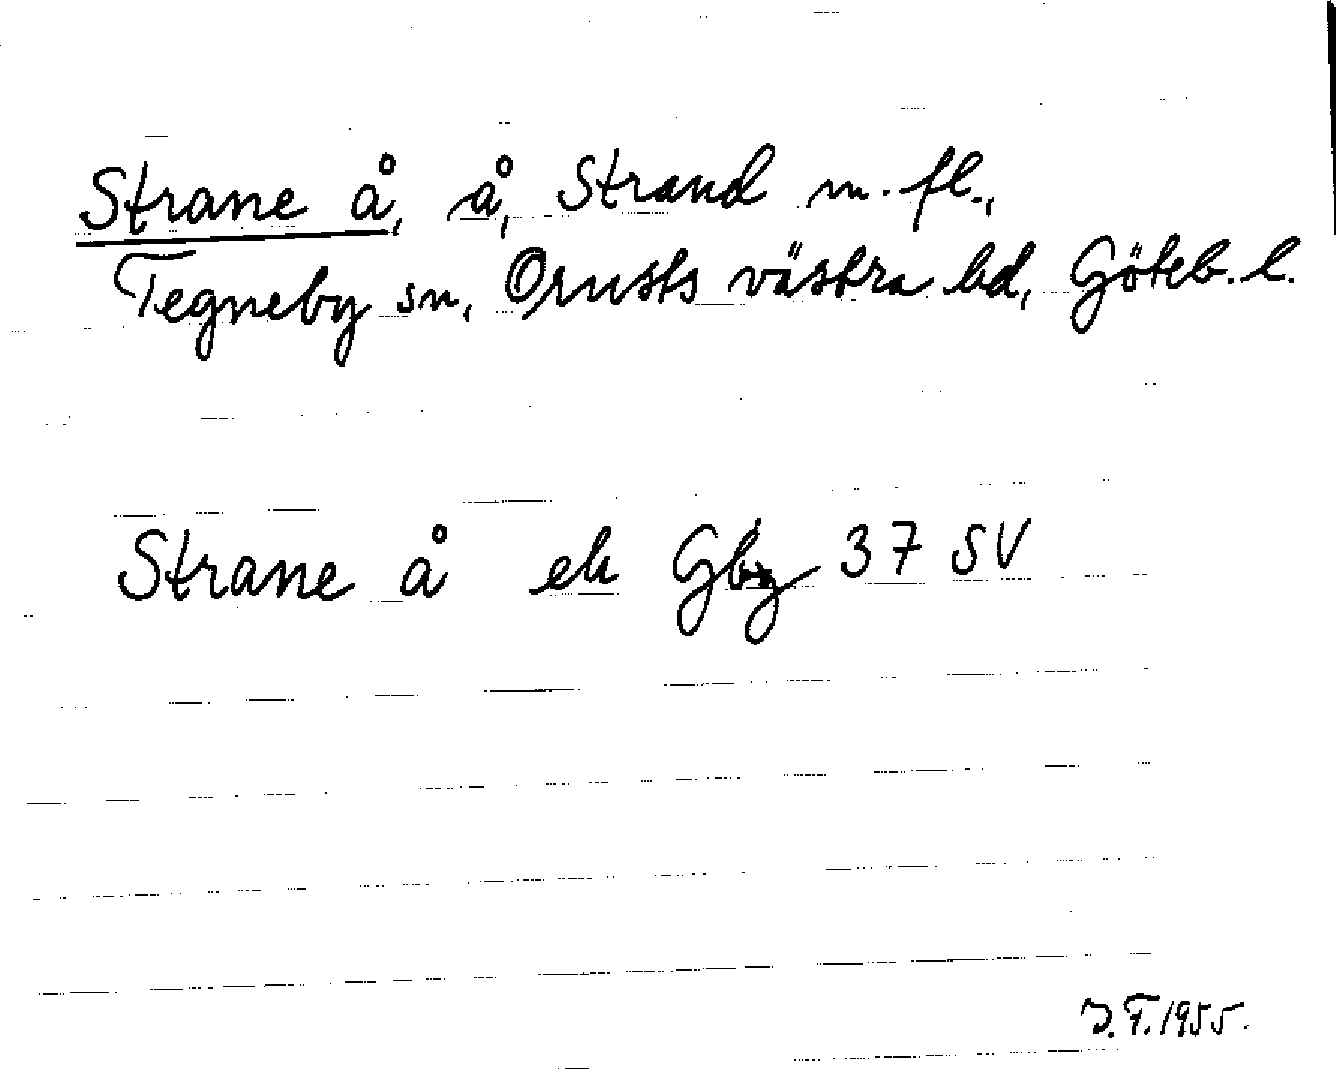 Strane å, å, Strand m. fl.,
Tegneby sn, Orusts västra hd, Göteb. l.
Strane å ek Gbg 37 SV
J.F. 1955.